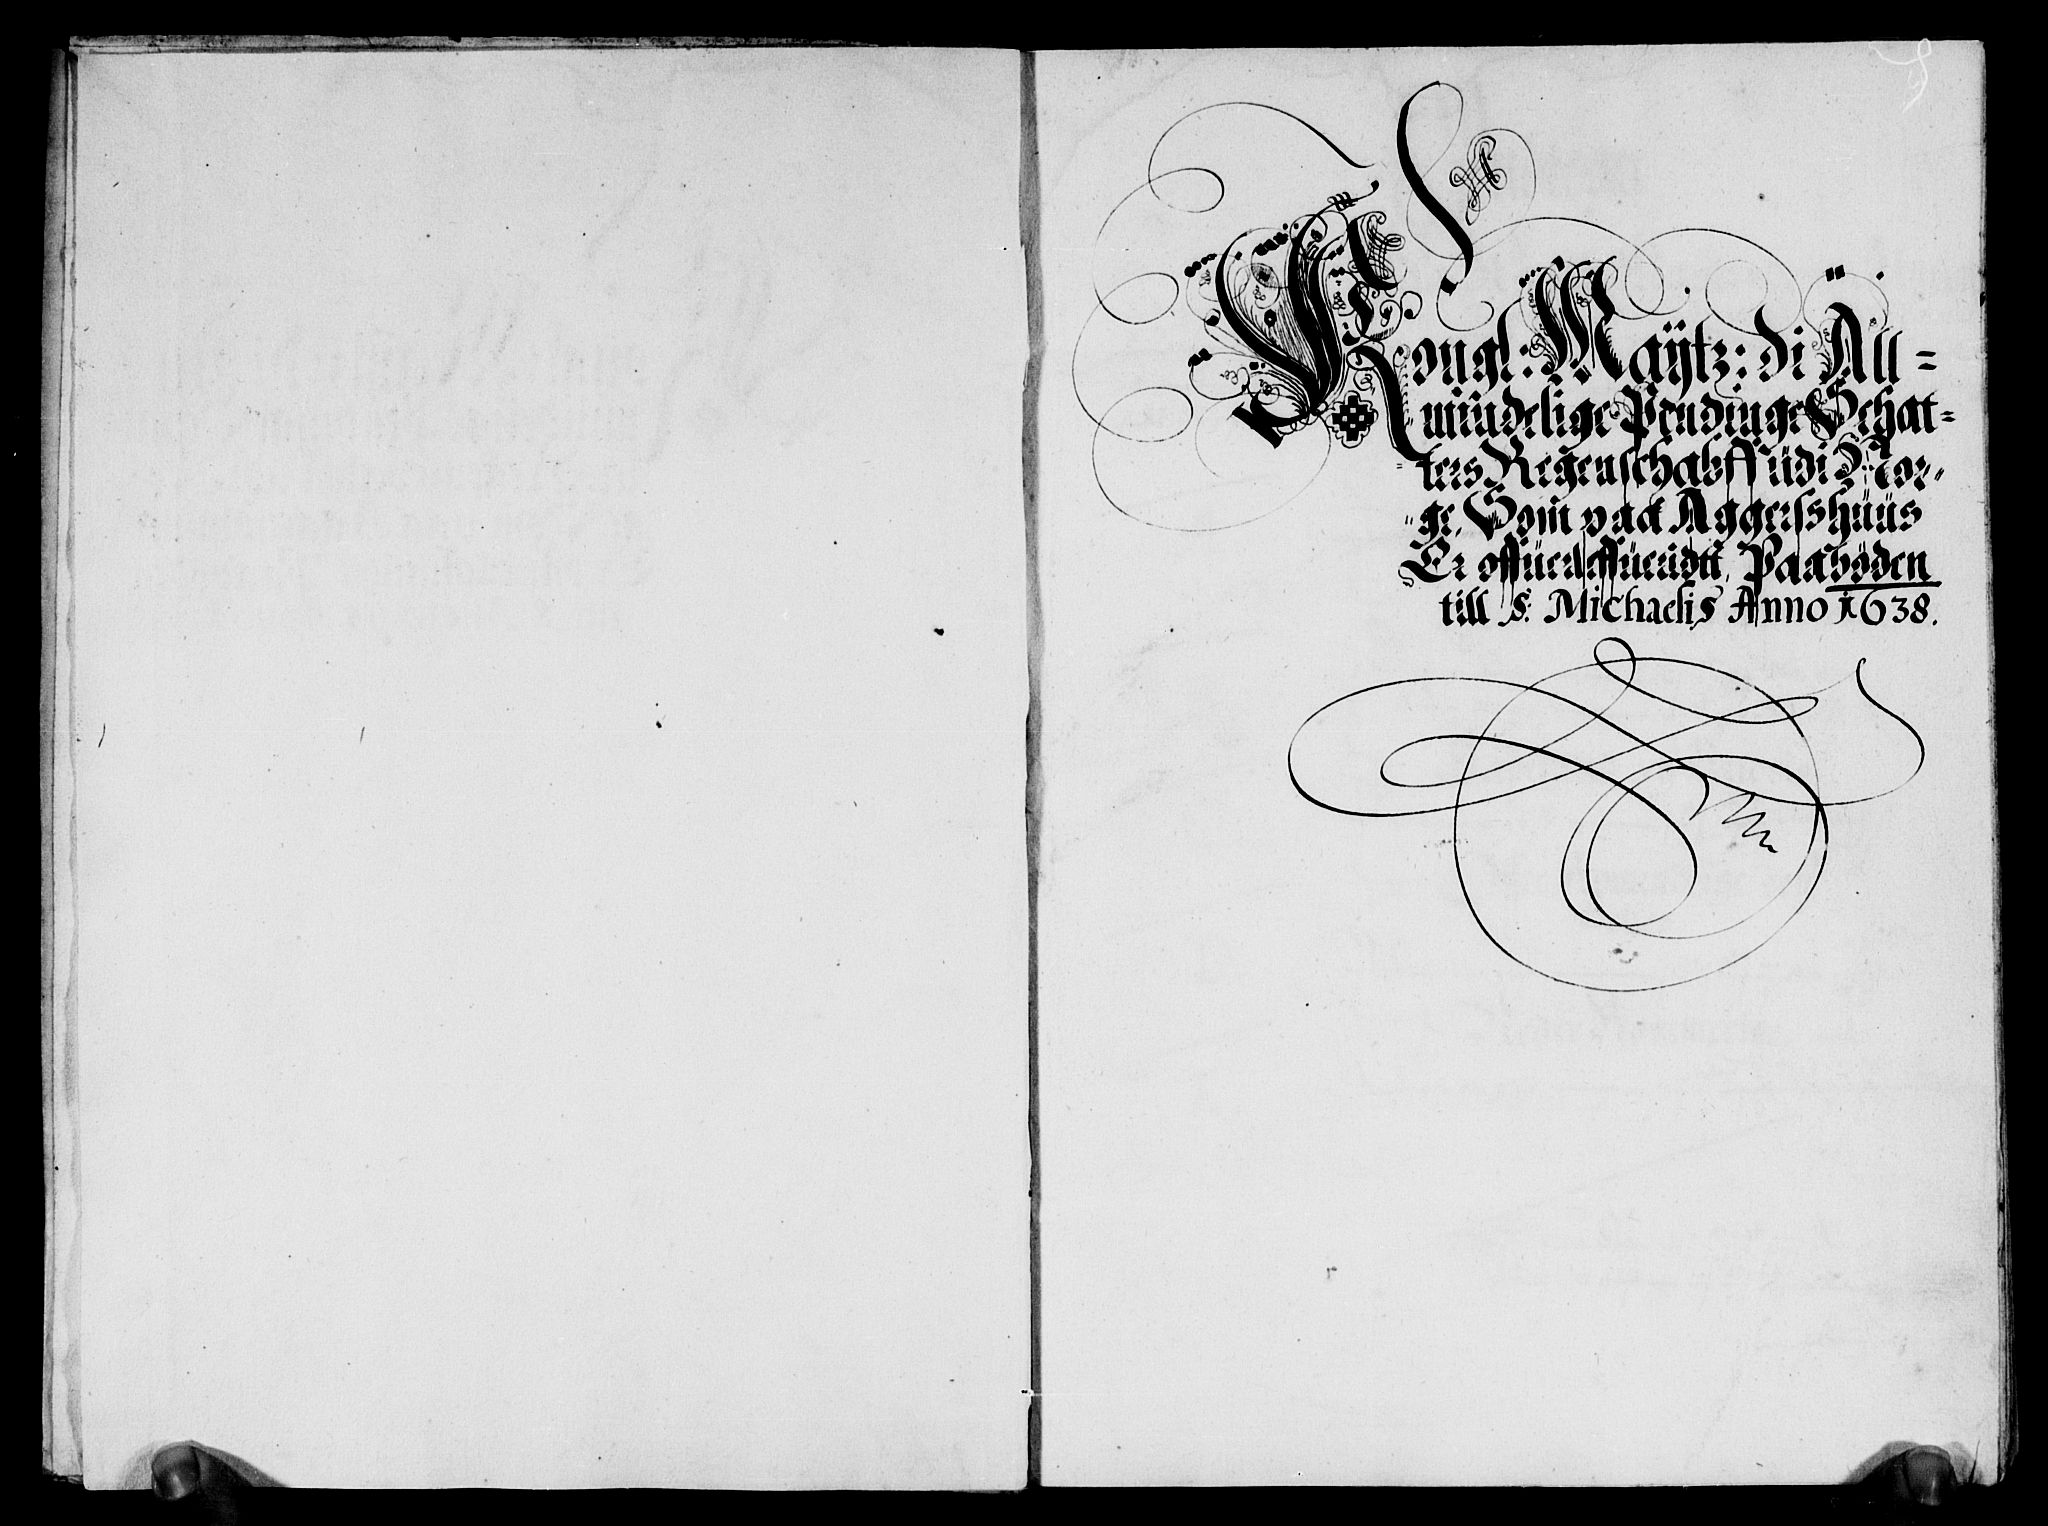 Kongl: Maÿtz: di All=
mündelige Pendinge Schat=
=ters Regenschabff üdi Nor=
=ge, Som paa Aggersshüüs
Er offüerleffüerüdtt, Paabøden
till S. Michaelis Anno 1638.